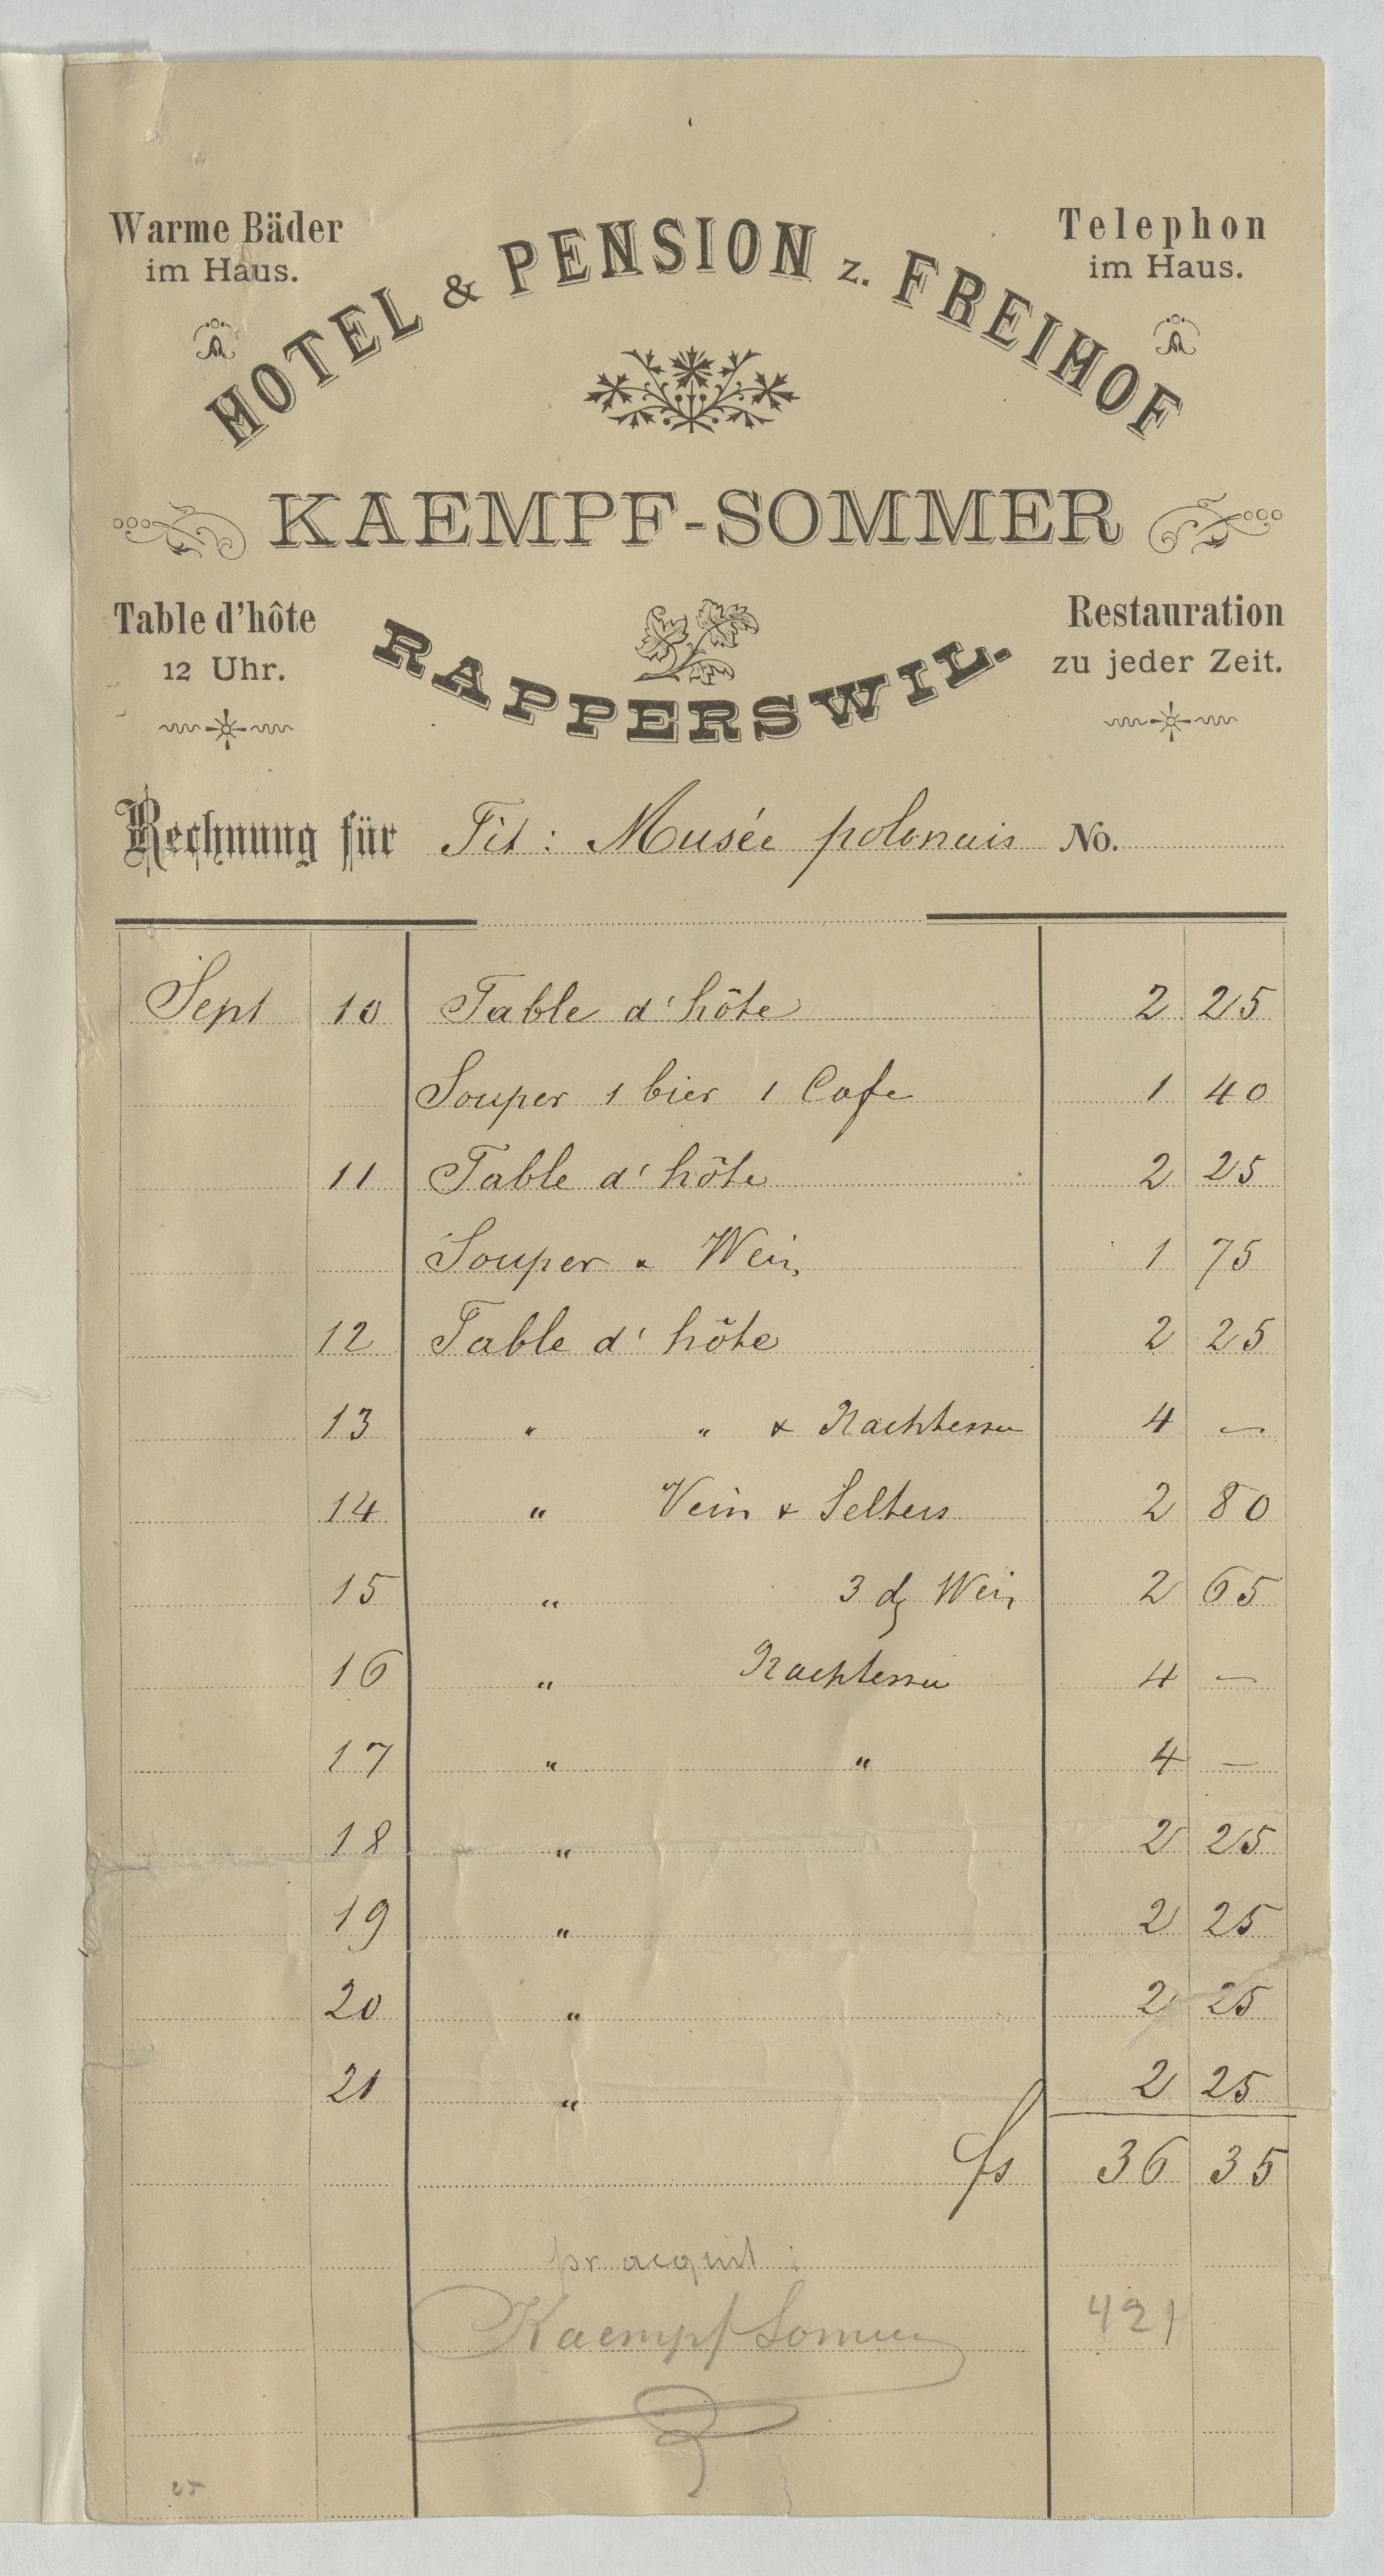 Warme Bäder
im Haus.
Telephon
im Haus.
HOTEL & PENSION z. FREIHOF
KAEMPF-SOMMER
Table d'hôte
12 Uhr.
Restauration
zu jeder Zeit.
RAPPERSWIL.
Rechnung für Tit: Musée polonais No.
Sept 10 Table d'hôte 2 25
Souper 1 bier 1 Cafe 1 40
11 Table d'hôte 2 25
Souper & Wein 1 75
12 Table d'hôte 2 25
13 " " & Nachtessen 4 —
14 " Vein & Selters 2 80
15 " 3 dz Wein 2 65
16 " Nachtessen 4 —
17 " " 4 —
18 " 2 25
19 " 2 25
20 " 2 25
21 " 2 25
fs 36 35
pr acquit :
Kaempf Sommer
421
25